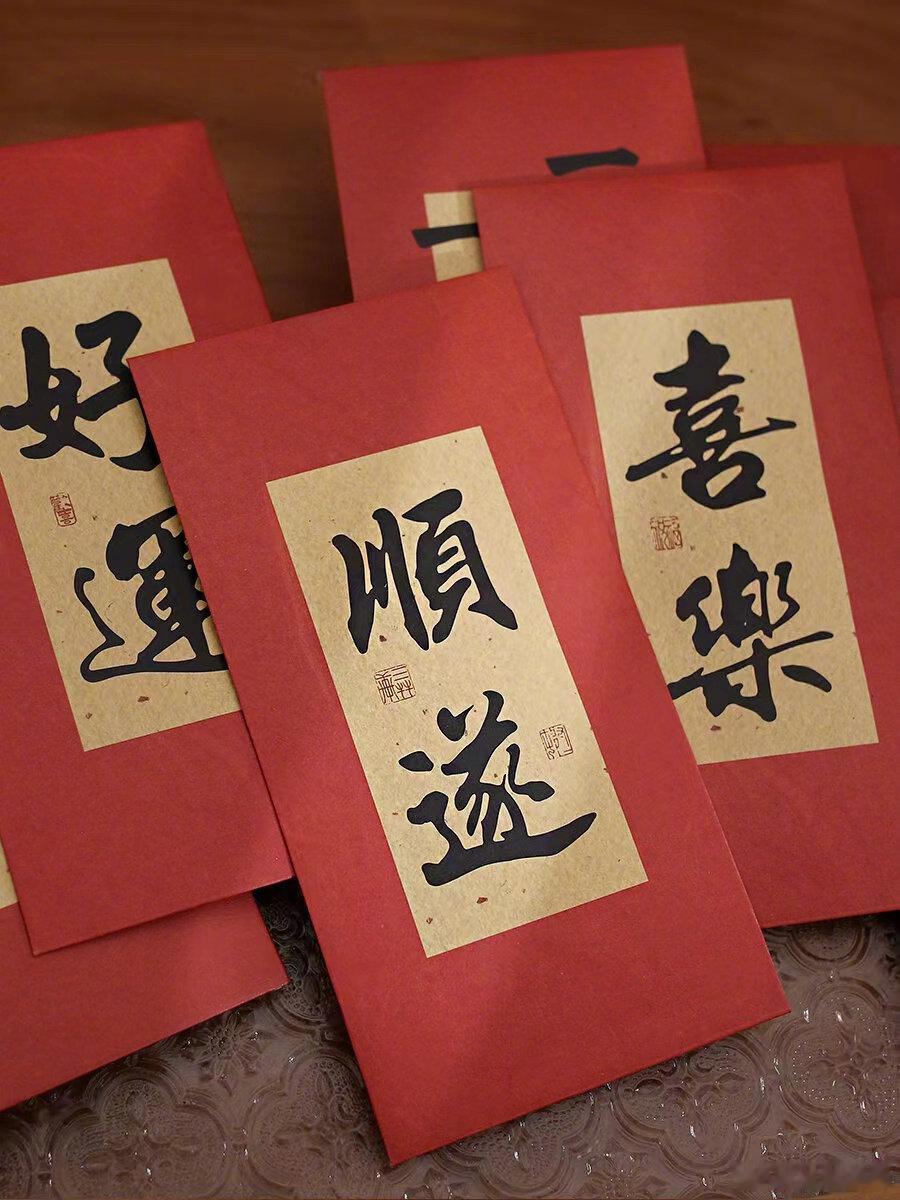 好運
順遂
喜樂